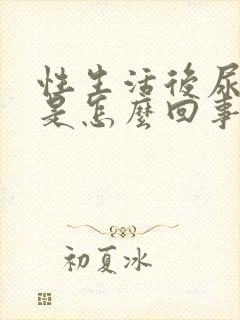 性生活後尿
是怎麼回事
初夏冰